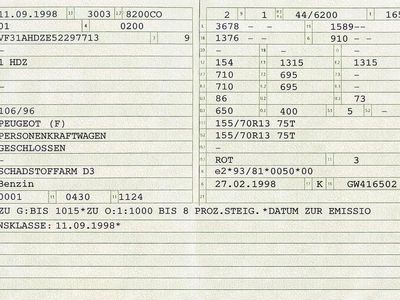 11.09.1998 3003 8200CO
01 0200
VF31AHDZE52297713 9
–
1 HDZ
–
–
–
106/96
PEUGEOT (F)
PERSONENKRAFTWAGEN
GESCHLOSSEN
–
SCHADSTOFFARM D3
Benzin
0001 0430 1124
2 1 44/6200 165
3678 – – 1589––
1376 – – 910 ––
– –
154 1315 1315
710 695 –
710 695 –
86 73
650 400 5 –
155/70R13 75T
155/70R13 75T
–
–
ROT 3
e2*93/81*0050*00
27.02.1998 K GW416502
ZU G:BIS 1015*ZU O:1:1000 BIS 8 PROZ.STEIG.*DATUM ZUR EMISSIO
NSKLASSE: 11.09.1998*